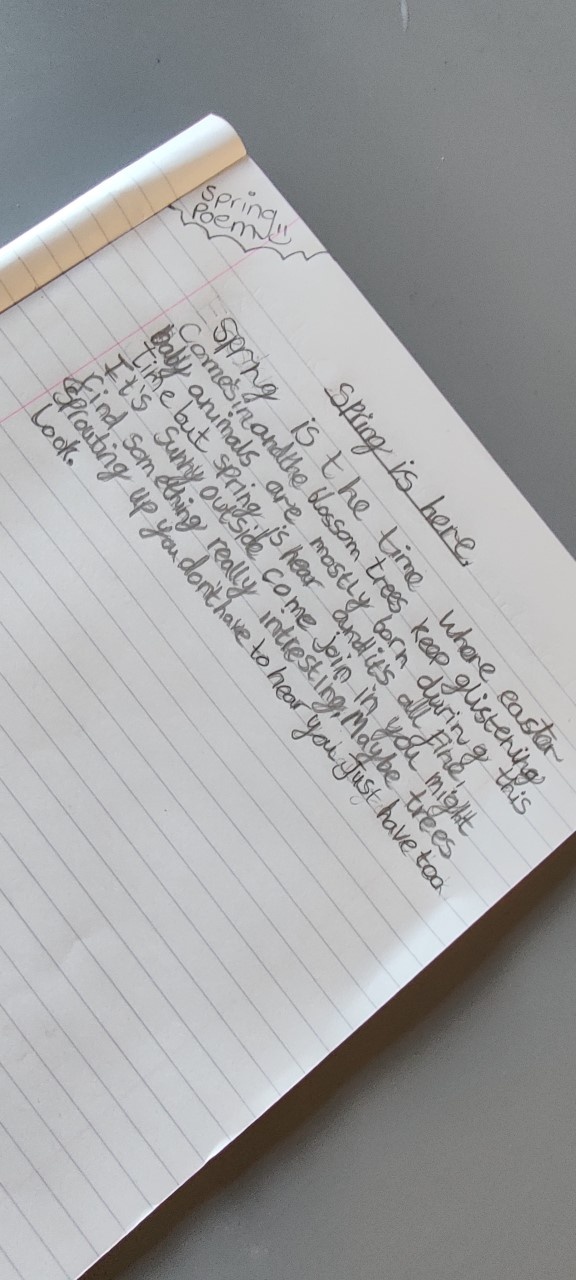 Spring
Poem
Spring is here.
Spring is the time where easter
comes in and the blossom trees keep glistening,
baby animals are mostly born during this
time but spring is hear and it's all fine
It's sunny outside come join in you might
find something really intresting, Maybe trees
sprouting up you don't have to hear you just have too
look.